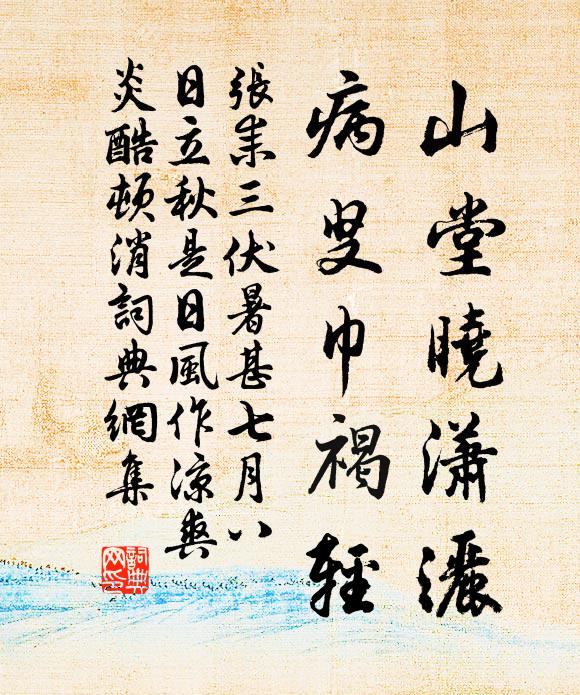 山堂曉瀟灑
病叟巾褐輕
張耒三伏暑甚七月八
日立秋是日風作凉爽
炎酷頓消詞典網集
詞典网印